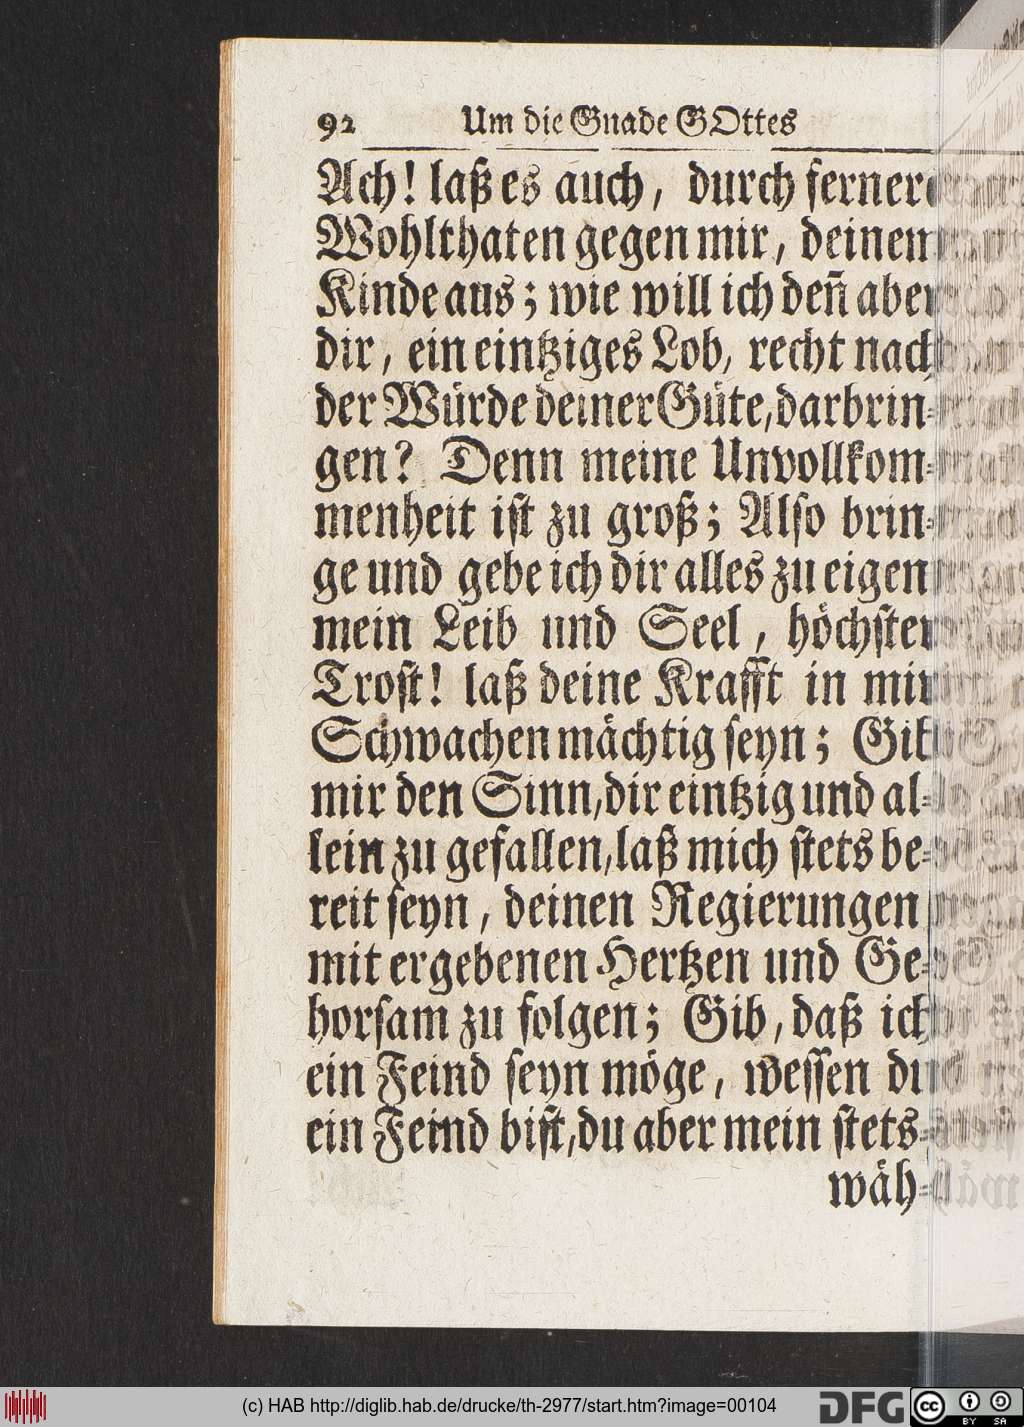 92 Um die Gnade GOttes
Ach! laß es auch, durch fernere
Wohlthaten gegen mir, deinem
Kinde aus; wie will ich deñ aber
dir, ein eintziges Lob, recht nach
der Würde deiner Güte, darbrin-
gen? Denn meine Unvollkom-
menheit ist zu groß; Also brin-
ge und gebe ich dir alles zu eigen
mein Leib und Seel, höchster
Trost! laß deine Krafft in mir
Schwachen mächtig seyn; Gib
mir den Sinn, dir eintzig und al-
lein zu gefallen, laß mich stets be-
reit seyn, deinen Regierungen
mit ergebenen Hertzen und Ge-
horsam zu folgen; Gib, daß ich
ein Feind seyn möge, wessen du
ein Feind bist, du aber mein stets-
wäh-
(c) HAB http://diglib.hab.de/drucke/th-2977/start.htm?image=00104
DFG
cc BY SA